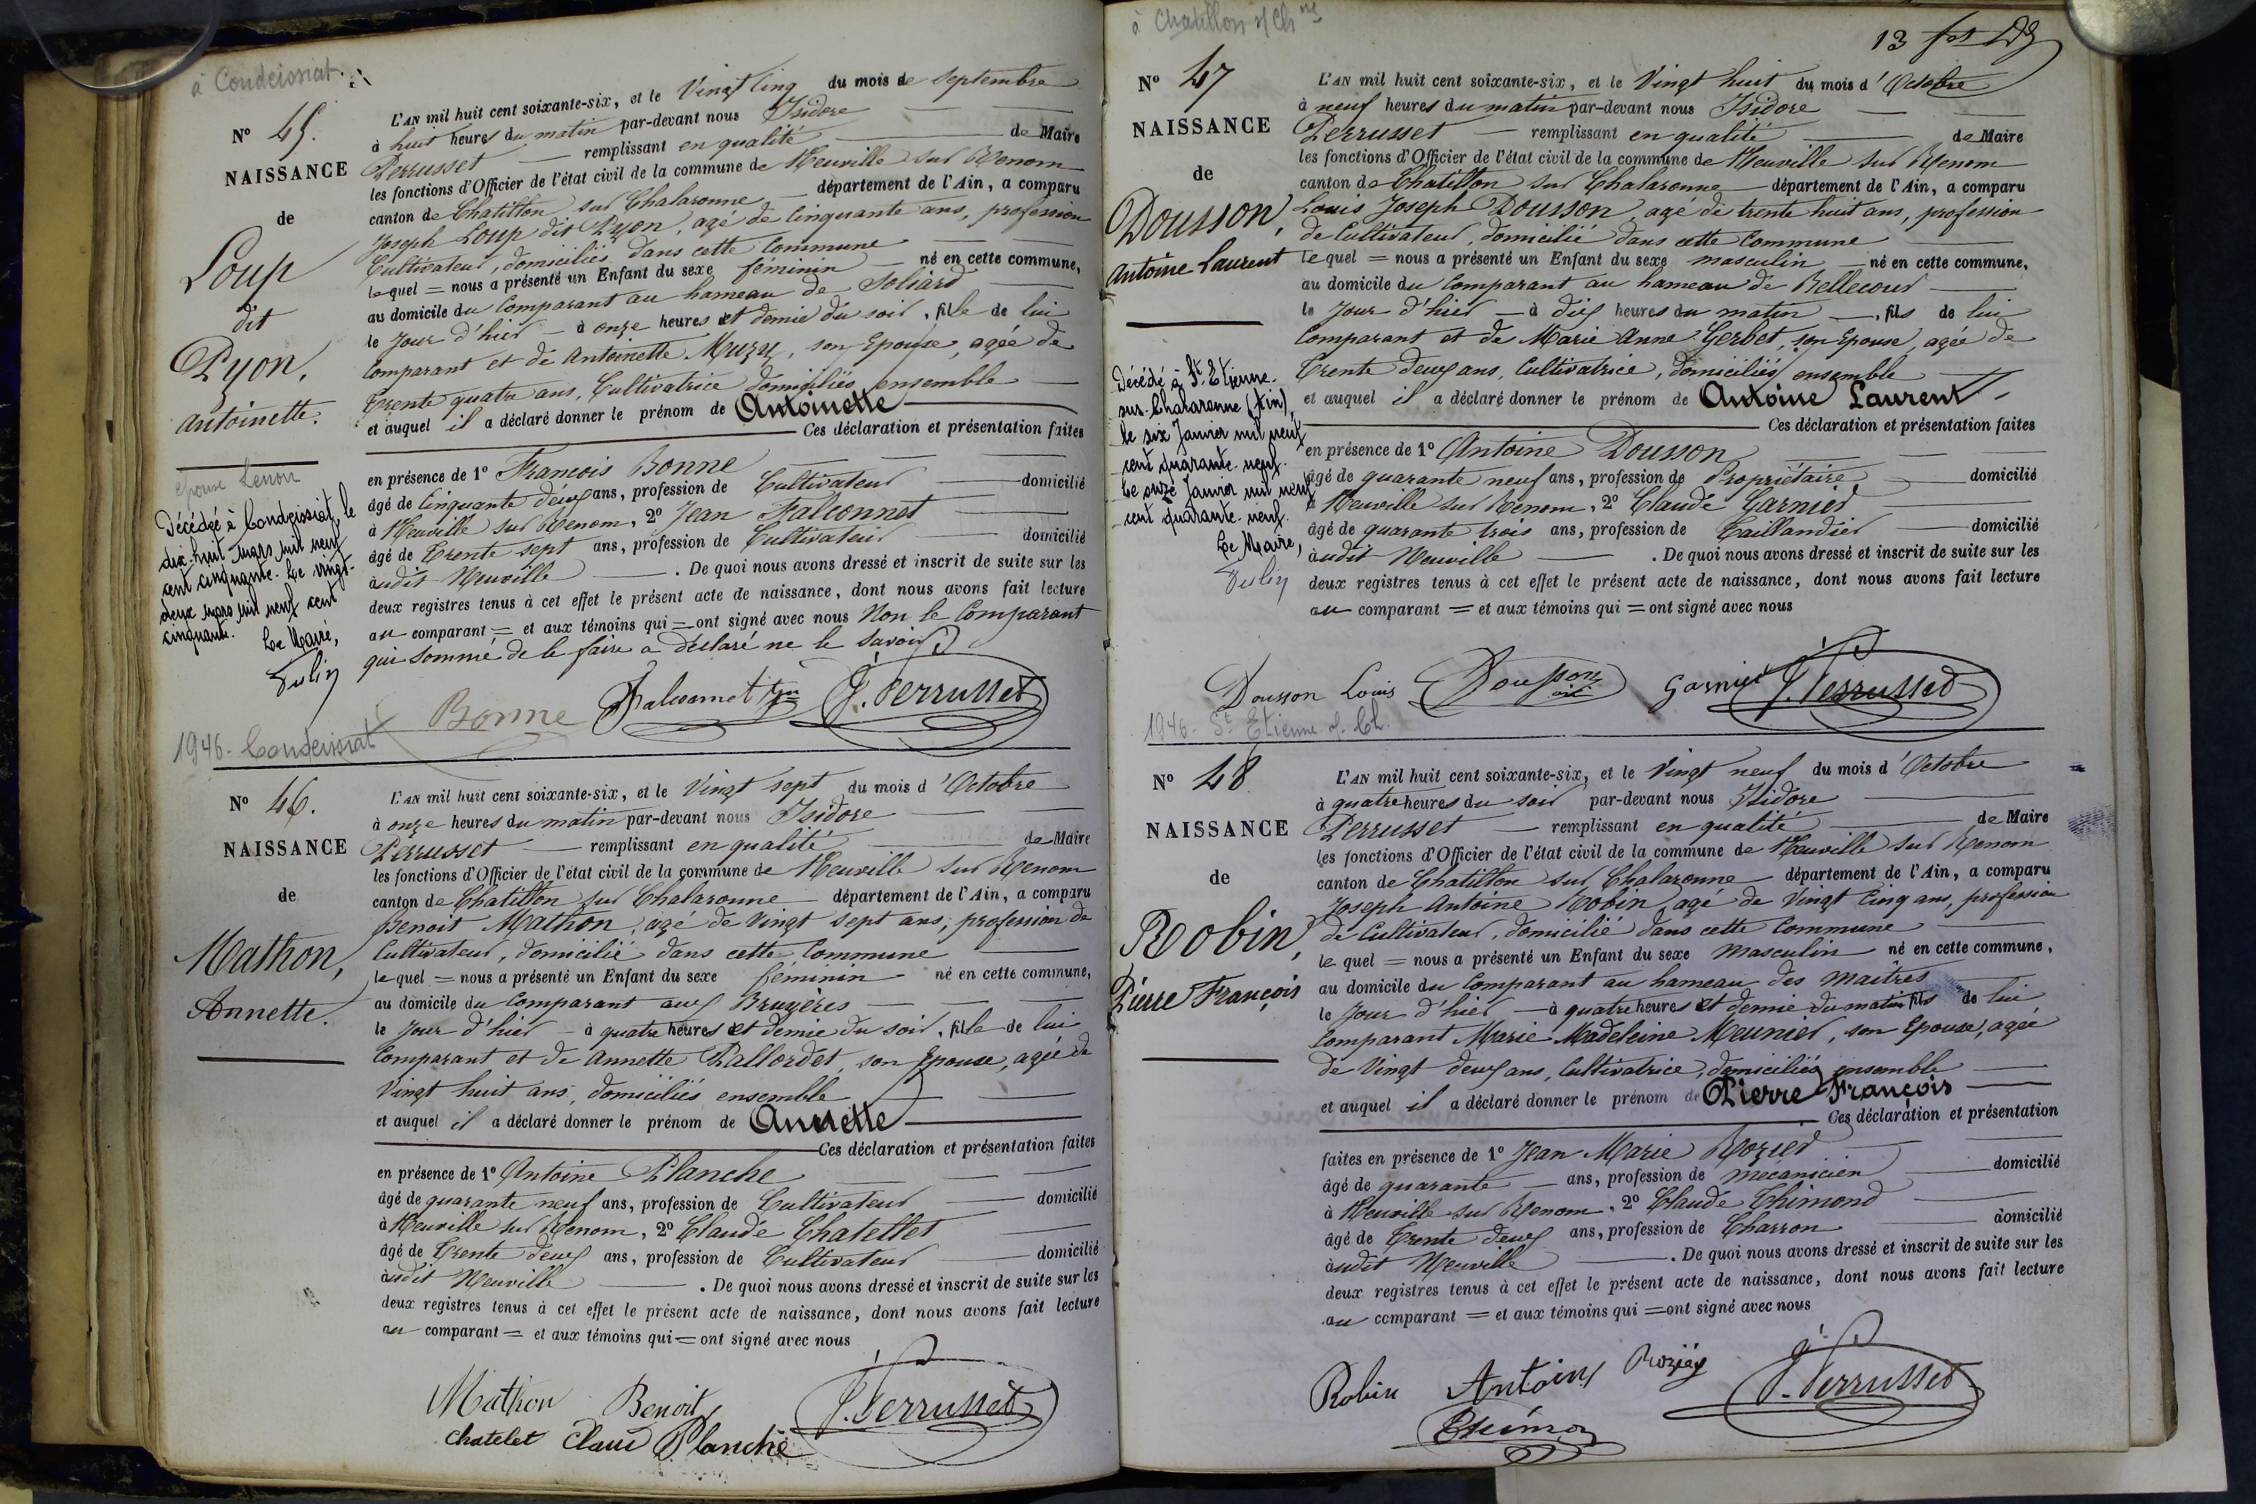 à Condeissiat
Nº 45.
NAISSANCE
de
Loup
dit
Pyon,
Antoinette.
épouse Lenoir
Décédée à Condeissiat, le
dix-huit mars mil neuf
cent cinquante. Le vingt-
deux mars mil neuf cent
cinquante.
Le Maire,
L'AN mil huit cent soixante-six, et le Vingt Cinq du mois de Septembre
à huit heures du matin par-devant nous Isidore
Perrusset remplissant en qualité de Maire
les fonctions d'Officier de l'état civil de la commune de Neuville sur Renom
canton de Chatillon sur Chalaronne département de l'Ain, a comparu
Joseph Loup dit Pyon, agé de Cinquante ans, profession
Cultivateur, domiciliés dans cette Commune
lequel = nous a présenté un Enfant du sexe féminin né en cette commune,
au domicile du Comparant au hameau de Soliard
le Jour d'hier à onze heures et demie du soir, fille de lui
Comparant et de Antoinette Muzy, son Epouse, agée de
Trente quatre ans, Cultivatrice domiciliés ensemble
et auquel il a déclaré donner le prénom de Antoinette
Ces déclaration et présentation faites
en présence de 1º François Bonne
âgé de Cinquante deux ans, profession de Cultivateur domicilié
à Neuville sur Renom, 2º Jean Falconnet
âgé de Trente sept ans, profession de Cultivateur domicilié
àudit Neuville. De quoi nous avons dressé et inscrit de suite sur les
deux registres tenus à cet effet le présent acte de naissance, dont nous avons fait lecture
au comparant = et aux témoins qui = ont signé avec nous Non le Comparant
qui sommé de le faire a déclaré ne le savoir
Bonne Falconnet J. Perrusset
1946. Condeissiat
Nº 46.
NAISSANCE
de
Mathon,
Annette.
L'AN mil huit cent soixante-six, et le Vingt sept du mois d'Octobre
à onze heures du matin par-devant nous Isidore
Perrusset remplissant en qualité de Maire
les fonctions d'Officier de l'état civil de la commune de Neuville sur Renom
canton de Chatillon sur Chalaronne département de l'Ain, a comparu
Benoit Mathon, agé de Vingt sept ans, profession de
Cultivateur, domicilié dans cette Commune
lequel = nous a présenté un Enfant du sexe féminin né en cette commune,
au domicile du Comparant aux Bruyères
le Jour d'hier à quatre heures et demie du soir, fille de lui
Comparant et de Annette Pallordet, son Epouse, agée de
Vingt huit ans, domiciliés ensemble
et auquel il a déclaré donner le prénom de Annette
Ces déclaration et présentation faites
en présence de 1º Antoine Planche
âgé de quarante neuf ans, profession de Cultivateur domicilié
à Neuville sur Renom, 2º Claude Chatellet
âgé de Trente deux ans, profession de Cultivateur domicilié
àudit Neuville. De quoi nous avons dressé et inscrit de suite sur les
deux registres tenus à cet effet le présent acte de naissance, dont nous avons fait lecture
au comparant = et aux témoins qui = ont signé avec nous
Mathon Benoit J. Perrusset
Chatelet Claude Planche
à Chatillon s/Chne
13
Nº 47
NAISSANCE
de
Dousson,
Antoine Laurent
Décédé à St. Etienne-
sur-Chalaronne (Ain),
le six Janvier mil neuf
cent quarante-neuf.
Le onze Janvier mil neuf
cent quarante-neuf.
Le Maire,
L'AN mil huit cent soixante-six, et le Vingt huit du mois d'Octobre
à neuf heures du matin par-devant nous Isidore
Perrusset remplissant en qualité de Maire
les fonctions d'Officier de l'état civil de la commune de Neuville sur Renom
canton de Chatillon sur Chalaronne département de l'Ain, a comparu
Louis Joseph Dousson, agé de trente huit ans, profession
de Cultivateur, domicilié dans cette Commune
lequel = nous a présenté un Enfant du sexe masculin né en cette commune,
au domicile du Comparant au hameau de Bellecour
le Jour d'hier à dix heures du matin, fils de lui
Comparant et de Marie Anne Gerbet, son Epouse, agée de
Trente deux ans, Cultivatrice, domiciliés ensemble
et auquel il a déclaré donner le prénom de Antoine Laurent
Ces déclaration et présentation faites
en présence de 1º Antoine Dousson
âgé de quarante neuf ans, profession de Propriétaire domicilié
à Neuville sur Renom, 2º Claude Garnier
âgé de quarante trois ans, profession de Taillandier domicilié
àudit Neuville. De quoi nous avons dressé et inscrit de suite sur les
deux registres tenus à cet effet le présent acte de naissance, dont nous avons fait lecture
au comparant = et aux témoins qui = ont signé avec nous
Dousson Louis Dousson Garnier J. Perrusset
1946. St Etienne s. Ch.
Nº 48
NAISSANCE
de
Robin,
Pierre François
L'AN mil huit cent soixante-six, et le Vingt neuf du mois d'Octobre
à quatre heures du soir par-devant nous Isidore
Perrusset remplissant en qualité de Maire
les fonctions d'Officier de l'état civil de la commune de Neuville sur Renom
canton de Chatillon sur Chalaronne département de l'Ain, a comparu
Joseph Antoine Robin, agé de Vingt Cinq ans, profession
de Cultivateur, domicilié dans cette Commune
lequel = nous a présenté un Enfant du sexe Masculin né en cette commune,
au domicile du Comparant au hameau des Maîtres
le Jour d'hier à quatre heures et demie du matin fils de lui
Comparant Marie Madeleine Meunier, son Epouse, agée
de Vingt deux ans, Cultivatrice, domiciliés ensemble
et auquel il a déclaré donner le prénom de Pierre François
Ces déclaration et présentation
faites en présence de 1º Jean Marie Rozier
âgé de quarante ans, profession de mecanicien domicilié
à Neuville sur Renom, 2º Claude Thimond
âgé de Trente deux ans, profession de Charron domicilié
àudit Neuville. De quoi nous avons dressé et inscrit de suite sur les
deux registres tenus à cet effet le présent acte de naissance, dont nous avons fait lecture
au comparant = et aux témoins qui = ont signé avec nous
Robin Antoine Rozier J. Perrusset